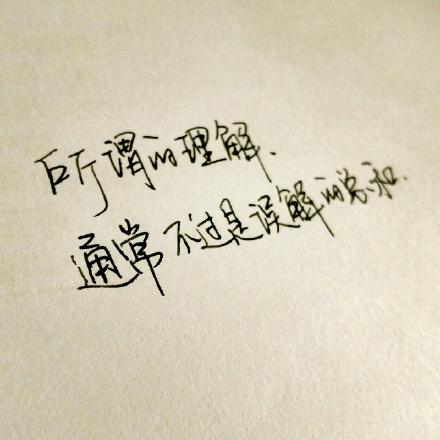 所谓的理解、
通常不过是误解的总和.